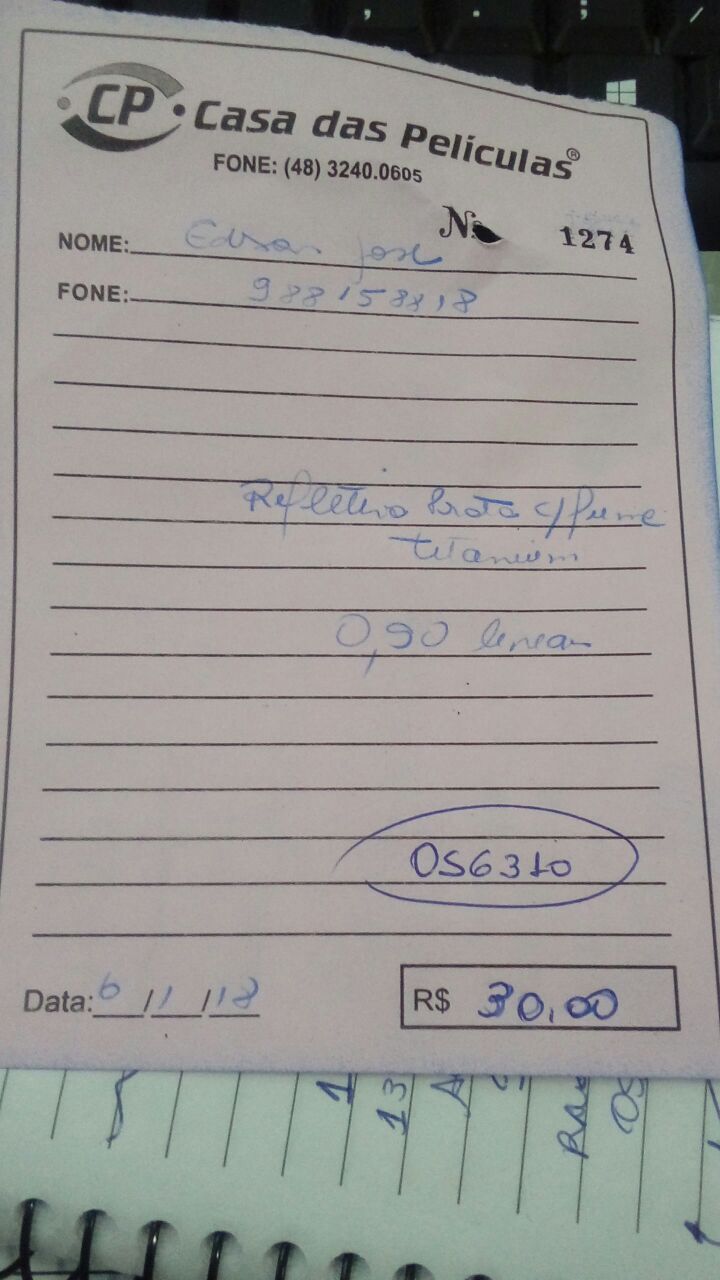 CP Casa das Películas®
FONE: (48) 3240.0605
Nº 1274
NOME: Edson José
FONE: 988158818
Refletivo Prata c/fume
titanium
0,90 linear
OS6310
Data: 6/1/18 R$ 30,00
1
13
OS